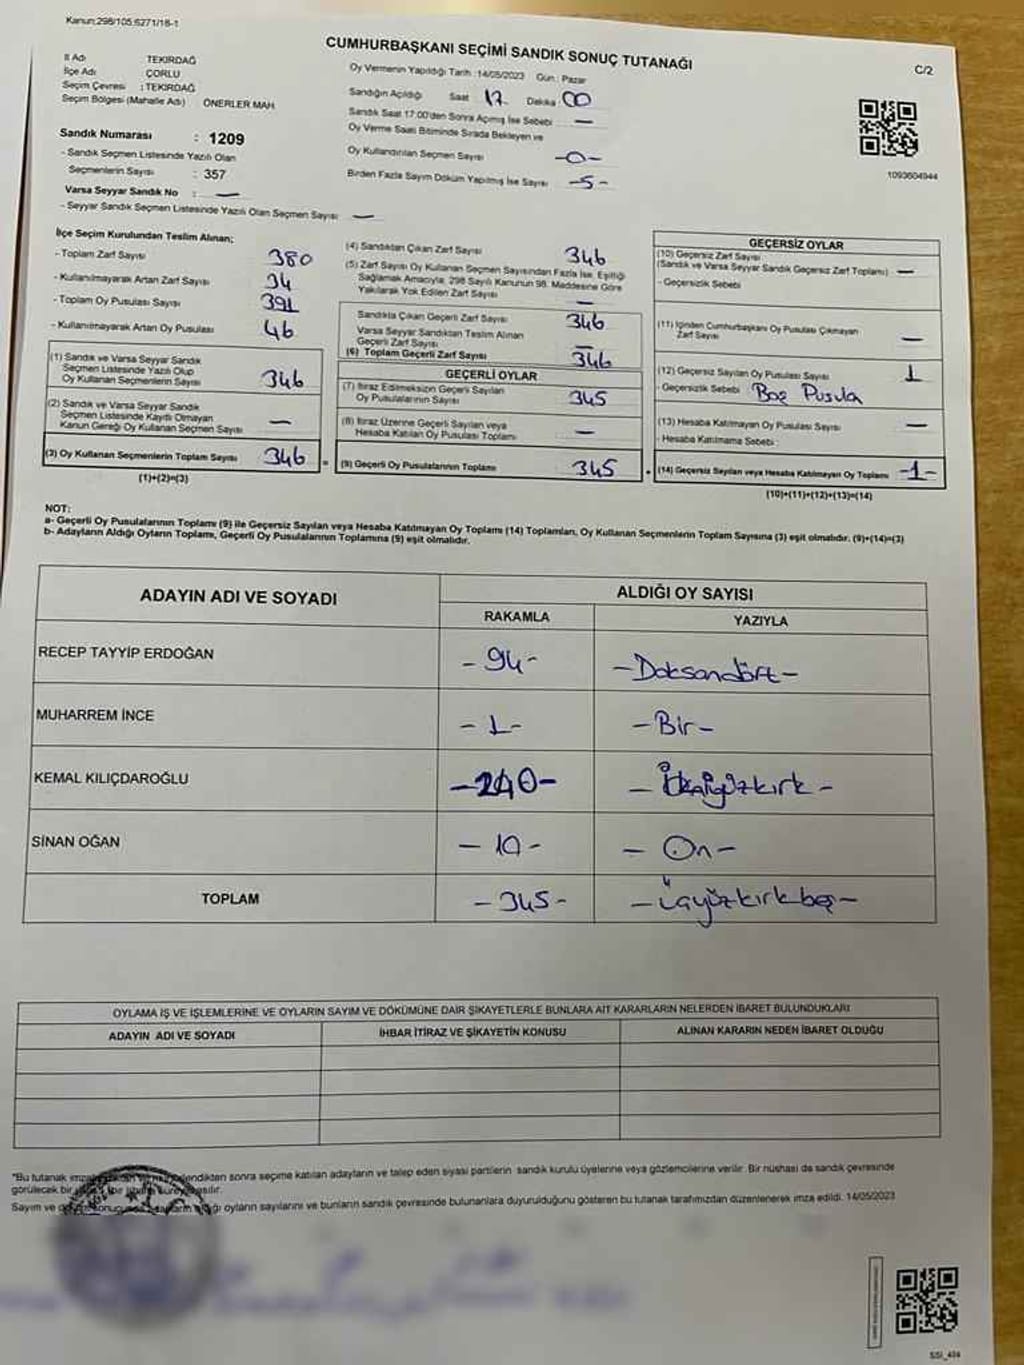 Kanun:298/105,6271/18-1
CUMHURBAŞKANI SEÇİMİ SANDIK SONUÇ TUTANAĞI
C/2
İl Adı TEKİRDAĞ
İlçe Adı ÇORLU
Seçim Çevresi : TEKİRDAĞ
Seçim Bölgesi (Mahalle Adı) ÖNERLER MAH.
Oy Vermenin Yapıldığı Tarih : 14/05/2023 Gün : Pazar
Sandığın Açıldığı Saat 17 Dakika 00
Sandık Saat 17:00'den Sonra Açılmış İse Sebebi —
Oy Verme Saati Bitiminde Sırada Bekleyen ve
Oy Kullandırılan Seçmen Sayısı -0-
Birden Fazla Sayım Döküm Yapılmış İse Sayısı -5-
1093604944
Sandık Numarası : 1209
- Sandık Seçmen Listesinde Yazılı Olan
Seçmenlerin Sayısı : 357
Varsa Seyyar Sandık No : —
- Seyyar Sandık Seçmen Listesinde Yazılı Olan Seçmen Sayısı —
İlçe Seçim Kurulundan Teslim Alınan;
- Toplam Zarf Sayısı 380
- Kullanılmayarak Artan Zarf Sayısı 34
- Toplam Oy Pusulası Sayısı 391
- Kullanılmayarak Artan Oy Pusulası 46
(1) Sandık ve Varsa Seyyar Sandık
Seçmen Listesinde Yazılı Olup
Oy Kullanan Seçmenlerin Sayısı 346
(2) Sandık ve Varsa Seyyar Sandık
Seçmen Listesinde Kayıtlı Olmayan
Kanun Gereği Oy Kullanan Seçmen Sayısı —
(3) Oy Kullanan Seçmenlerin Toplam Sayısı 346 =
(1)+(2)=(3)
(4) Sandıktan Çıkan Zarf Sayısı 346
(5) Zarf Sayısı Oy Kullanan Seçmen Sayısından Fazla İse, Eşitliği
Sağlamak Amacıyla; 298 Sayılı Kanunun 98. Maddesine Göre
Yakılarak Yok Edilen Zarf Sayısı —
Sandıkta Çıkan Geçerli Zarf Sayısı 346
Varsa Seyyar Sandıktan Teslim Alınan
Geçerli Zarf Sayısı —
(6) Toplam Geçerli Zarf Sayısı 346
GEÇERLİ OYLAR
(7) İtiraz Edilmeksizin Geçerli Sayılan
Oy Pusulalarının Sayısı 345
(8) İtiraz Üzerine Geçerli Sayılan veya
Hesaba Katılan Oy Pusulası Toplamı —
(9) Geçerli Oy Pusulalarının Toplamı 345 +
GEÇERSİZ OYLAR
(10) Geçersiz Zarf Sayısı
(Sandık ve Varsa Seyyar Sandık Geçersiz Zarf Toplamı) —
- Geçersizlik Sebebi
(11) İçinden Cumhurbaşkanı Oy Pusulası Çıkmayan
Zarf Sayısı —
(12) Geçersiz Sayılan Oy Pusulası Sayısı 1
- Geçersizlik Sebebi Boş Pusula
(13) Hesaba Katılmayan Oy Pusulası Sayısı —
- Hesaba Katılmama Sebebi :
(14) Geçersiz Sayılan veya Hesaba Katılmayan Oy Toplamı -1-
(10)+(11)+(12)+(13)=(14)
NOT:
a- Geçerli Oy Pusulalarının Toplamı (9) ile Geçersiz Sayılan veya Hesaba Katılmayan Oy Toplamı (14) Toplamları, Oy Kullanan Seçmenlerin Toplam Sayısına (3) eşit olmalıdır. (9)+(14)=(3)
b- Adayların Aldığı Oyların Toplamı, Geçerli Oy Pusulalarının Toplamına (9) eşit olmalıdır.
ADAYIN ADI VE SOYADI
ALDIĞI OY SAYISI
RAKAMLA YAZIYLA
RECEP TAYYİP ERDOĞAN -94- -Doksandört-
MUHARREM İNCE -1- -Bir-
KEMAL KILIÇDAROĞLU -240- -İkiyüzkırk-
SİNAN OĞAN -10- -On-
TOPLAM -345- -Üçyüzkırkbeş-
OYLAMA İŞ VE İŞLEMLERİNE VE OYLARIN SAYIM VE DÖKÜMÜNE DAİR ŞİKAYETLERLE BUNLARA AİT KARARLARIN NELERDEN İBARET BULUNDUKLARI
ADAYIN ADI VE SOYADI İHBAR İTİRAZ VE ŞİKAYETİN KONUSU ALINAN KARARIN NEDEN İBARET OLDUĞU
*Bu tutanak sonra seçime katılan adayların ve talep eden siyasi partilerin sandık kurulu üyelerine veya gözlemcilerine verilir. Bir nüshası da sandık çevresinde
görülecek bir
Sayım ve oyların sayılarını ve bunların sandık çevresinde bulunanlara duyurulduğunu gösteren bu tutanak tarafımızdan düzenlenerek imza edildi. 14/05/2023
SSI_404